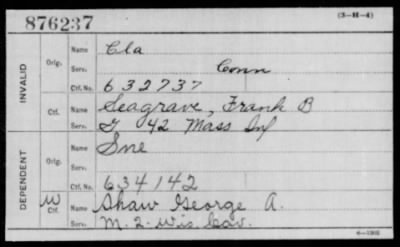 876237
(3-H-4)
INVALID
Orig.
Name Cla
Serv. Conn
Ctf. No. 632737
Ctf.
Name Seagrave, Frank B
Serv. G 42 Mass Inf
DEPENDENT
Orig.
Name Sne
Serv.
Ctf. No. 634142
W Ctf.
Name Shaw George A.
Serv. M. 2- Wis. Cav.
6-1905